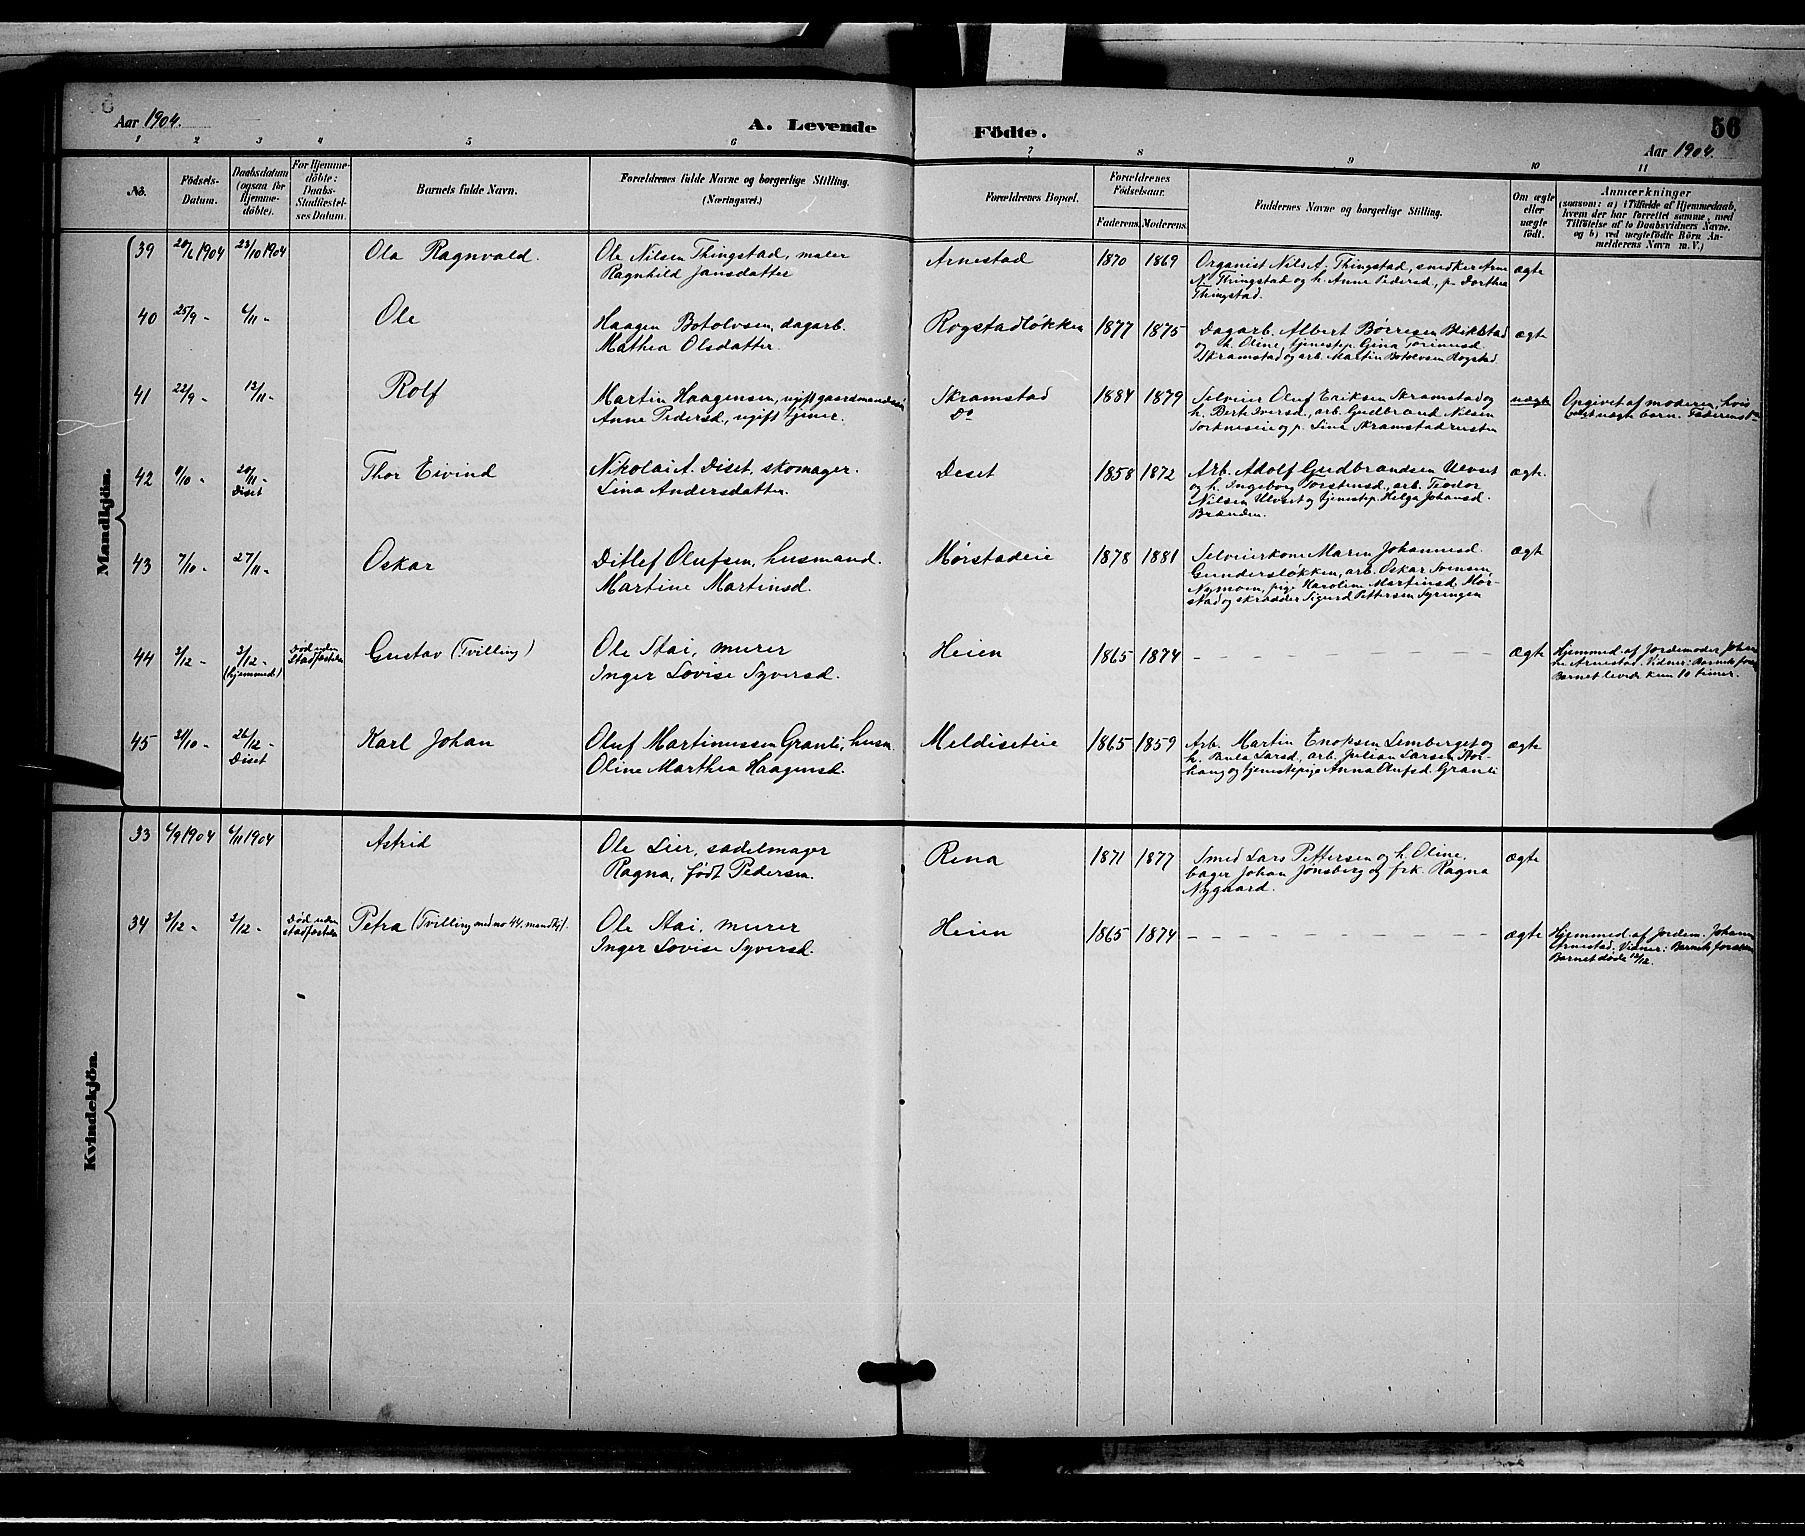 Aar 1904.
A. Levende
Födte.
56
Aar 1904.
1 2 3 4 5 6 7 8 9 10 11
No.
Födsels-
Datum.
Daabsdatum
(ogsaa for
Hjemme-
döbte).
For Hjemme-
döbte:
Daabs-
Stadfæstel-
ses Datum.
Barnets fulde Navn.
Forældrenes fulde Navne og borgerlige Stilling.
(Næringsvei.)
Forældrenes Bopæl.
Forældrenes
Födselsaar.
Faderens. Moderens.
Faddernes Navne og borgerlige Stilling.
Om ægte
eller
uægte
födt.
Anmærkninger
(saasom: a) i Tilfælde af Hjemmedaab,
hvem der har forrettet samme, med
Tilföielse af to Daabsvidners Navne,
og b) ved uægtefödte Börn An-
melderens Navn m. V.)
Mandkjön.
39 20/6 1904 23/10 1904 Ola Ragnvald.
Ole Nilsen Thingstad, maler
Ragnhild Jansdatter
Arnestad 1870 1869
Organist Nils A. Thingstad, snedker Arne
N. Thingstad og h. Anne Pedersd., p. Dorthea
Thingstad.
ægte
40 25/9 - 6/11 - Ole
Haagen Botolvsen, dagarb.
Mathea Olsdatter.
Rogstadløkken 1877 1875
Dagarb. Albert Børresen Blikstad
og h. Oline, tjenestep. Gina Torinusd.
Skramstad og arb. Martin Botolvsen Rogstad
ægte
41 22/9 - 12/11 - Rolf
Martin Haagensen, ugift gaardmandssøn
Anne Pedersd., ugift tjener.
Skramstad
Do
1884 1879
Selveier Oluf Eriksen Skramstad og
h. Berte Iversd., arb. Gudbrand Nilsen
og p. Line Skramstadrusten
uægte
Opgivet af moderen, hvis
uægte barn.
42 1/10 - 20/11 - Diset Thor Eivind
Nikolai A. Diset, skomager.
Lina Andersdatter.
Deset 1858 1872
Arb. Adolf Gudbrandsen Ulvset
og h. Ingeborg Torstensd., arb. Teodor
Nilsen Ulvset og tjenestep. Helga Johansd.
Brænden.
ægte.
43 7/10 - 27/11 - Oskar
Ditlef Olufsen, husmand.
Martine Martinsd.
Mørstadeie 1878 1881
Selveierkone Maren Johannesd.
Gundersløkken, arb. Oskar Svensen
Nymoen, pige Karoline Martinsd. Mør-
stad og skrædder Sigurd Pettersen Syringen
ægte
44 3/12 - 3/12 - (hjemmed.) Død uden
Stadfæstelse
Gustav (Tvilling)
Ole Stai, murer
Inger Lovise Syversd.
Heien 1865 1874
- - - - - - - - - -
ægte
Hjemmed. af Jordemoder Johan-
ne Arnestad. Vidner: Barnets foræl.
Barnet levede kun 10 timer.
45 31/10 - 26/12 - Diset Karl Johan
Oluf Martinussen Granli, husm.
Oline Marthea Haagensd.
Meldiseteie 1865 1859
Arb. Martin Enoksen Lemberget og
h. Paula Larsd., arb. Julian Larsen Stor-
haug og tjenestepige Anna Olufsd. Granli
ægte
Kvindekjön.
33 6/9 1904 6/11 1904 Astrid
Ole Lier, sadelmager
Ragna, født Pedersen.
Rena 1871 1877
Smed Lars Pettersen og h. Oline,
bager Johan Jønsberg og frk. Ragna
Nygaard.
ægte
34 3/12 - 3/12 - Død uden
stadfæstelse
Petra (Tvilling med no 44, mandkj).
Ole Stai, murer
Inger Lovise Syversd.
Heien 1865 1874
- - - - - - - - - -
ægte
Hjemmed. af Jordem. Johanne
Arnestad. Vidner: Barnets forældre
Barnet døde 12/12.